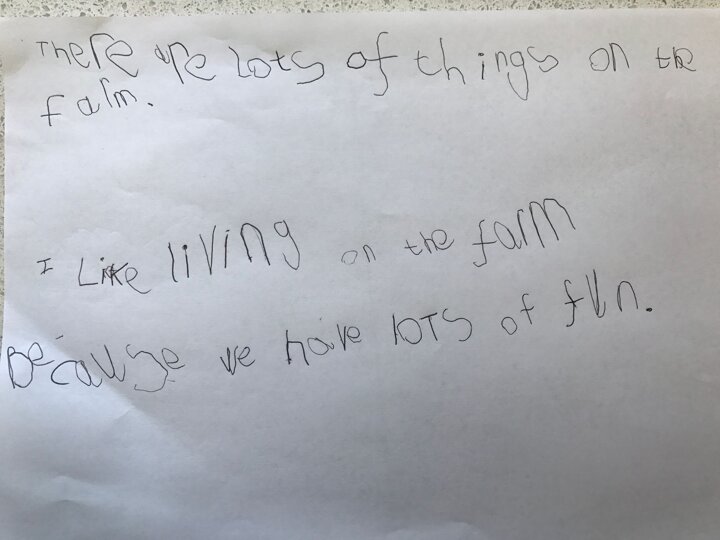 There are lots of things on the
farm.
I Like living on the farm
Because we have lOTS of fUn.